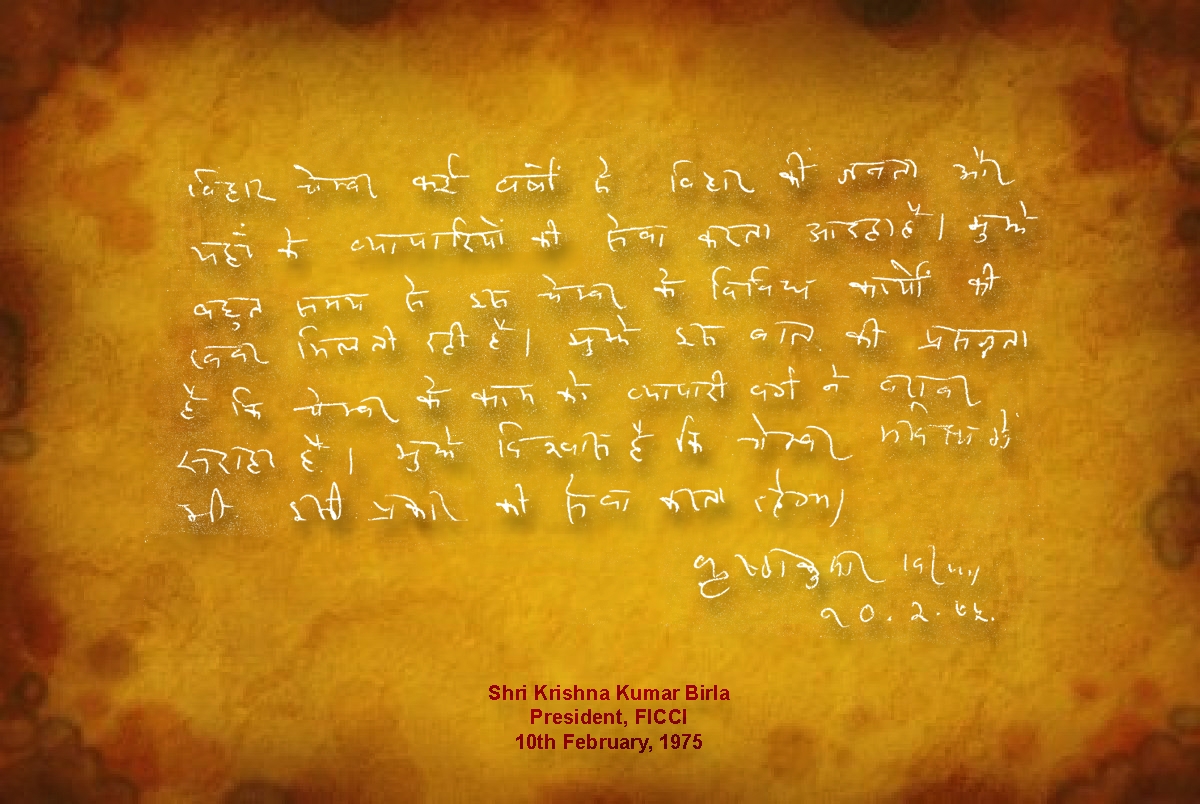 बिहार चेम्बर कई वर्षों से बिहार की जनता और
यहां के व्यापारियों की सेवा करता आरहा है। मुझे
बहुत समय से इस चेम्बर के विविध कार्यों की
खबर मिलती रही है। मुझे इस बात की प्रसन्नता
है कि चेम्बर के काम को व्यापारी वर्ग ने बराबर
सराहा है। मुझे विश्वास है कि चेम्बर भविष्य में
भी इसी प्रकार की सेवा करता रहेगा।
कृष्णकुमार बिरला
१०.२.७५.
Shri Krishna Kumar Birla
President, FICCI
10th February, 1975